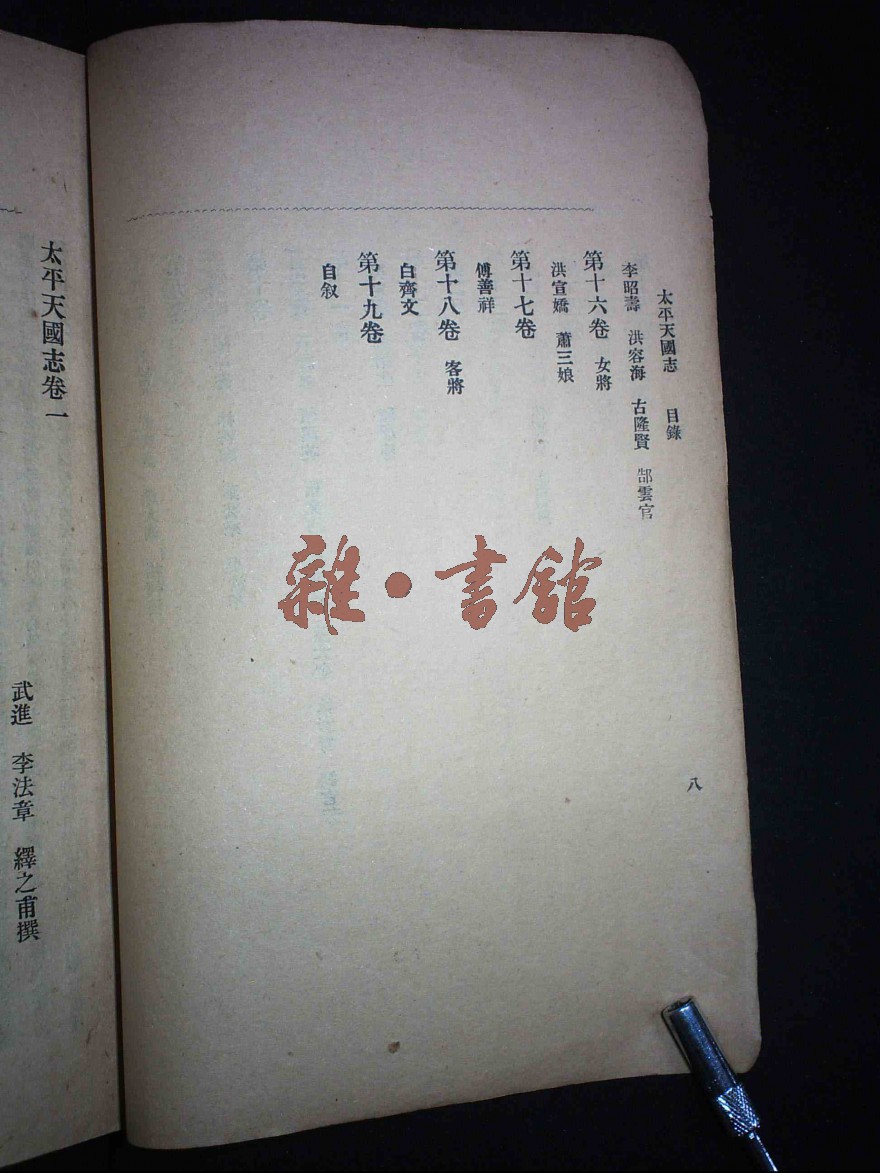 太平天國志　目錄
李昭壽　洪容海　古隆賢　郜雲官
第十六卷　女將
洪宣嬌　蕭三娘
第十七卷
傅善祥
第十八卷　客將
白齊文
第十九卷
自叙
八
太平天國志卷一
武進　李法章　繹之甫撰
雜·書館